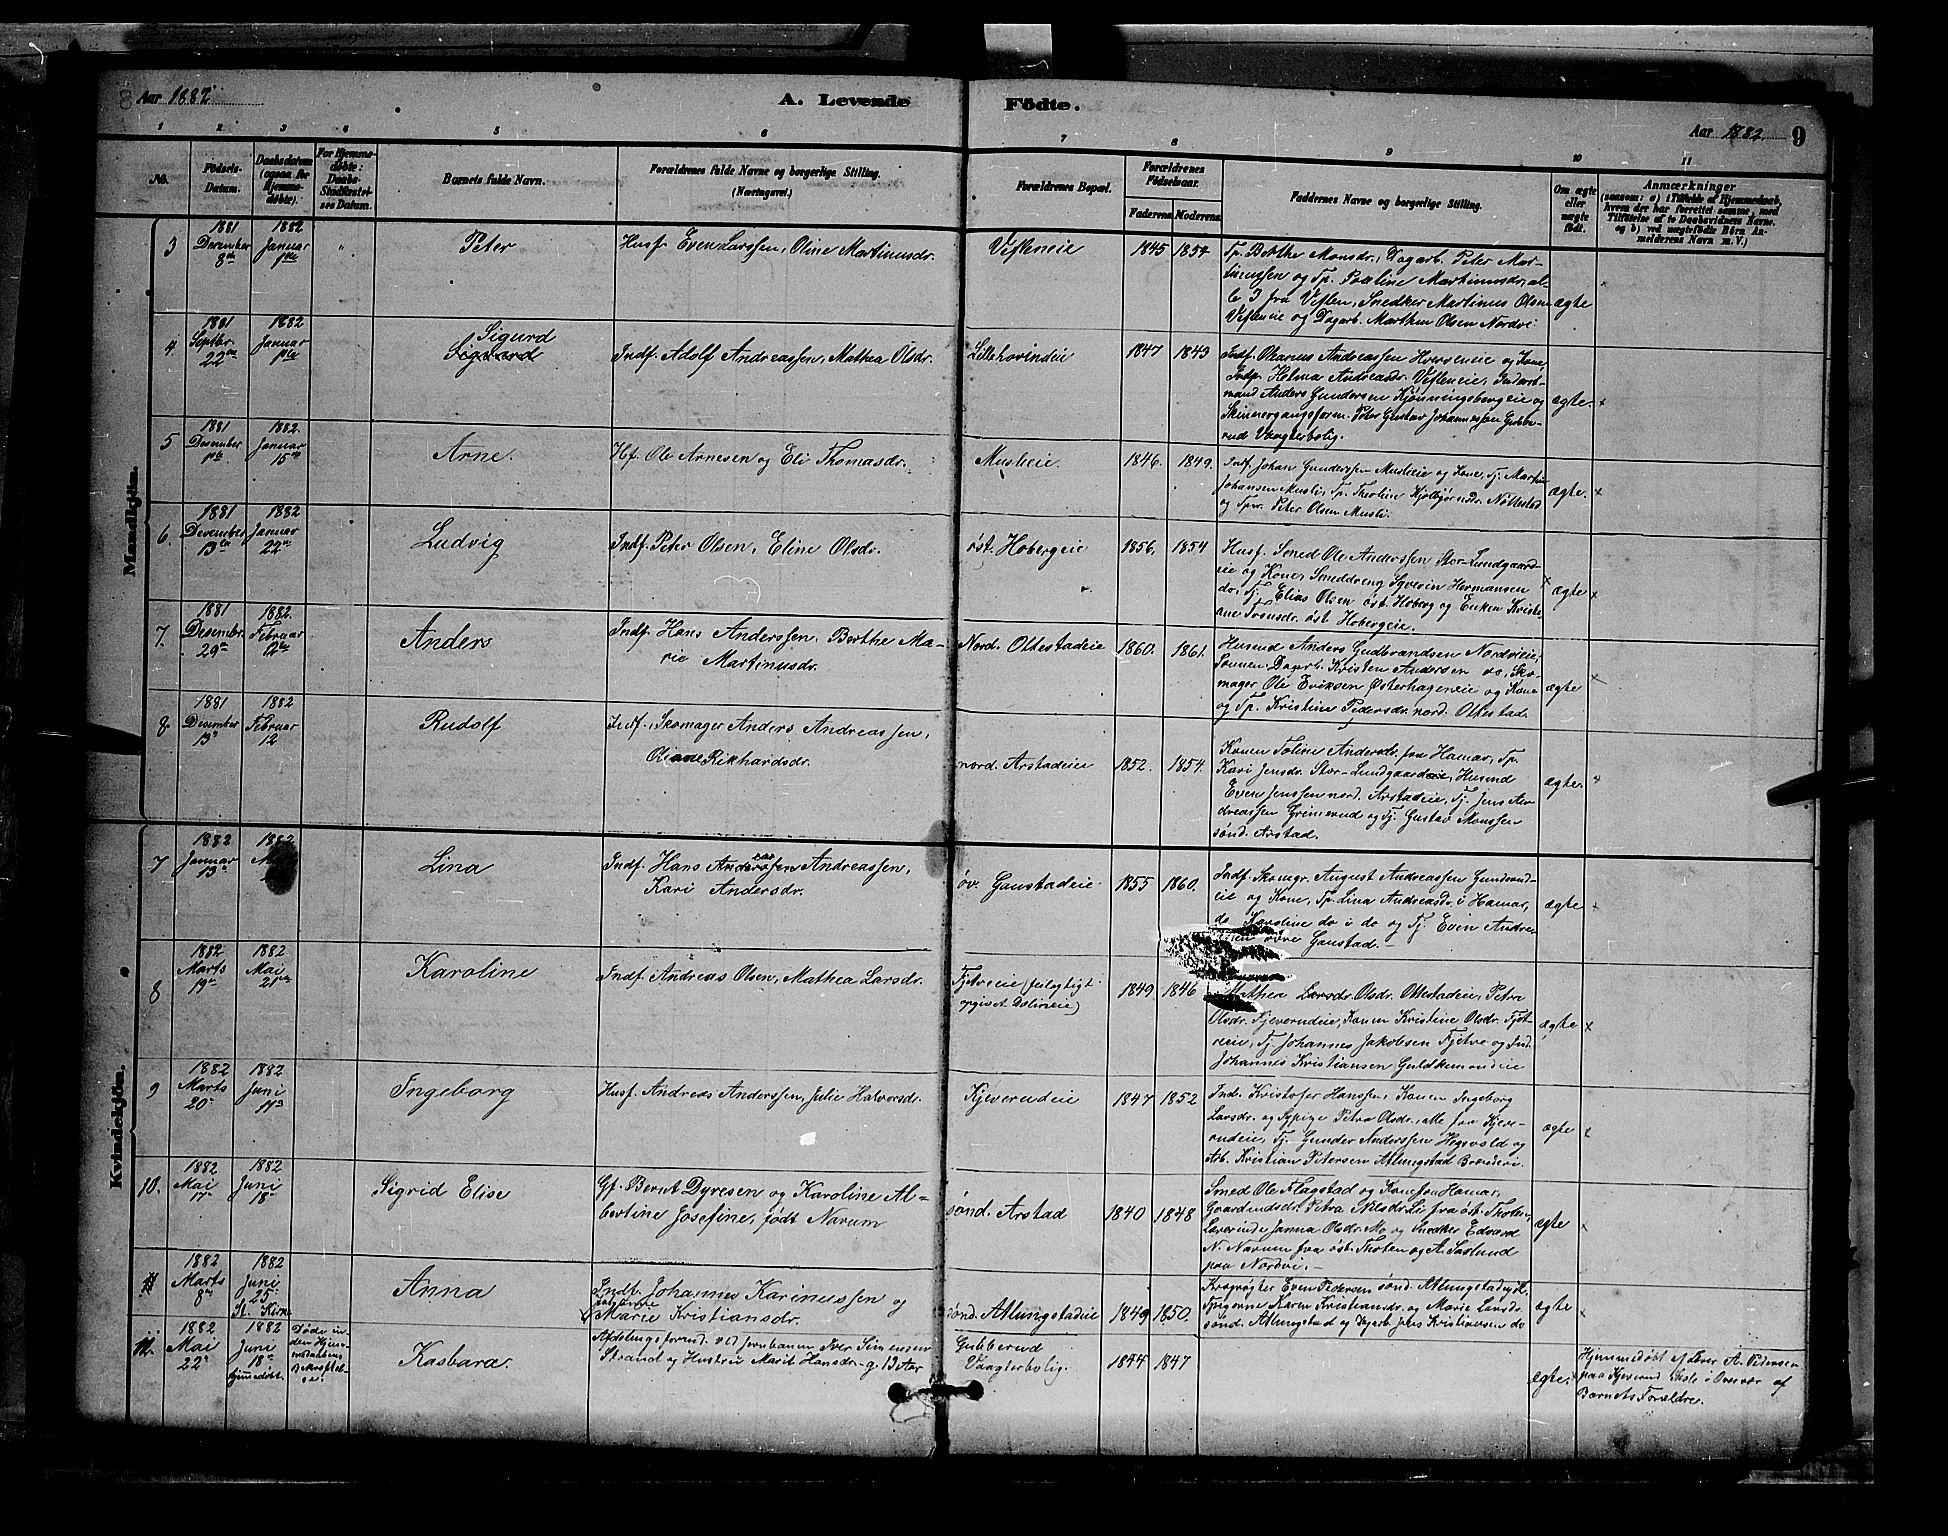 Aar 1882
A. Levende Födte.
Aar 1882. 9
1 2 3 4 5 6 7 8 9 10 11
No.
Födsels-Datum.
Daabsdatum (ogsaa for Hjemmedøbte).
For Hjemmedøbte: Daabs-Stadfæstelses Datum.
Barnets fulde Navn.
Forældrenes fulde Navne og borgerlige Stilling.
(Næringsvei.)
Forældrenes Bopæl.
Forældrenes Födselsaar.
Faderens. Moderens.
Faddernes Navne og borgerlige Stilling.
Om ægte eller uægte födt.
Anmærkninger
(saasom: a) i Tilfælde af Hjemmedaab, hvem der har forrettet samme, med Tilföielse af to Daabsvidners Navne. og b) ved uægtefödte Börn Anmelderens Navn m. V.)
Mandkjön.
3 1881 December 8de 1882 Januar 1ste Peter
Husf. Even Larssen, Oline Martinusdr. Vifleneie 1845 1854
Tp. Berthe Monsdr., Dagarb. Peter Mar-
tinussen og Tp. Pauline Martinusdr, al-
le 3 fra Viflen, Snedker Martinus Olsen
Vifleneie og Dagarb. Marthin Olsen Nordvi
ægte
4. 1881 Septbr 22de 1882 Januar 1ste Sigurd
Indf. Adolf Andreassen, Mathea Olsdr. Lillehovindeie 1847 1843
Indf. Okarius Andreassen Hverveneie og Kone,
Indp. Helma Andreasdr. Vifleneie, Indert-
mand Anders Gundersen Kjønningsbergeie og
Skinnergangsform. Peter Gustav Johannessen Gubbe-
rud Vaagterbolig.
ægte. x
5 1881 Desember 1ste 1882. Januar 15de Arne.
Hf. Ole Arnesen og Eli Thomasdr. Muslieie. 1846. 1849.
Indf. Johan Gunderssen Muslieie og Kone, Tj. Martin
Johansen Musli, Tp. Theoline Kjølbjørnsdr. Nøttestad
og Tpr. Peter Olsen Musli.
ægte. x
6. 1881 December 13de 1882 Januar 22de Ludvig
Indf. Peter Olsen, Eline Olsdr. øst. Hobergeie 1856. 1854
Husf. Smed Ole Anderssen Stor-Lundgaard-
eie og Kone, Smeddreng Syverin Hermansen
do, Tj. Elias Olsen øst. Hoberg og Enken Kristi-
ane Ivarsdr. øst Hobergeie.
ægte x
7. 1881 Desembr. 29de 1882. Februar 12te Anders
Indf. Hans Anderssen. Berthe Ma-
rie Martinusdr. Nord. Ottestadeie 1860. 1861.
Husmd Anders Gudbrandsen Nordvieie,
Sønnen Dagarb. Kristen Andersen do, Sko-
mager Ole Eriksen Østerhageneie og Kone
og Tp. Kristine Pedersdr. nord. Ottestad.
ægte x
8 1881 Desember 13de 1882 Februar 12 Rudolf
Indf. Skomager Anders Andreassen,
Oliane Rikhardsdr. nord. Arstadeie 1852. 1854.
Konen Toline Andersdr. fra Hamar, Tp.
Kari Jensdr. Stor-Lundgaardeie, Husmd
Even Jenssen nord. Arstadeie, Tj. Jens An-
dreassen Grimerud og Tj. Gustav Monssen
sönd. Arstad.
ægte.
Kvindekjön.
7 1882 Januar 13de 1882 Lina
Indf. Hans Andreassen,
Kari Andersdr. öv. Gaustadeie 1855 1860.
Indf. Skomgr. August Andreassen Gunerud-
eie og Kone, Tp. Lina Andreasdr. i Hamar,
do Karoline do i do og Tj. Even Andre-
øvre Gaustad.
ægte
8 1882 Marts 19de 1882 Mai 21de Karoline
Indf. Andreas Olsen, Mathea Larsdr. Fjetreeie (feilagtigt
opgivet Dælineie) 1849 1846
Mathea Olsdr. Ottestadeie, Petra
Olsdr. Kjeverudeie, Konen Kristine Olsdr. Fjet-
reeie, Tj. Johannes Jakobsen Fjetre og Ind.
Johannes Kristiansen Guldkerudeie
ægte x
9 1882 Marts 20de 1882 Juni Ingeborg
Husf. Andreas Anderssen, Julie Halvorsdr. Kjeverudeie 1847 1852
Ind. Kristofer Hanssen, Konen Ingeborg
Larsdr. og Sypige Petra Olsdr., alle fra Kjeve-
rudeie, Tj. Gunder Anderssen Hegsvold og
Arb. Kristian Petersen Atlungstad Brænderi.
ægte x
10. 1882 Mai 17de 1882 Juni 18de Sigrid Elise
Gf. Bernt Dyresen og Karoline Al-
bertine Josefine, født Narum sönd. Arstad 1840 1848
Smed Ole Flagstad og Kone fra Hamar,
Gaardmdsdr. Petra Nilsdr. Li fra øst. Thoten,
Lærerinde Janna Olsdr. Mo og Snedker Edvard
N. Narum fra øst. Thoten og A. Saslund
paa Nordvi.
ægte x
11 1882 Marts 8de 1882 Juni 25de Anna
Indf. Johannes Karinussen og
Marie Kristiansdr. sönd. Atlungstadeie 1849 1850.
Krøgrøgter Even Pedersen sönd. Atlungstad,
Pigerne Karen Kristiansdr. og Marie Larsdr.
sönd. Atlungstad og Dagarb. Jens Kristianssen do
ægte x
12. 1882 Mai 22de 1882 Juni 18de hjemmedøbt. Døde in-
den Hjem-
medaabens
Bekræftel-
se. Kasbara.
Afdelingsformd. ved Jernbanen Iver Simensen
Strand og Hustru Marit Hansdr. g. 13 Aar Gubberud
Vaagterbolig. 1844 1847
ægte.
Hjemmedøbt af Lærer A. Pedersen
paa Kjeverud Skole i Overvær af
Barnets Forældre.